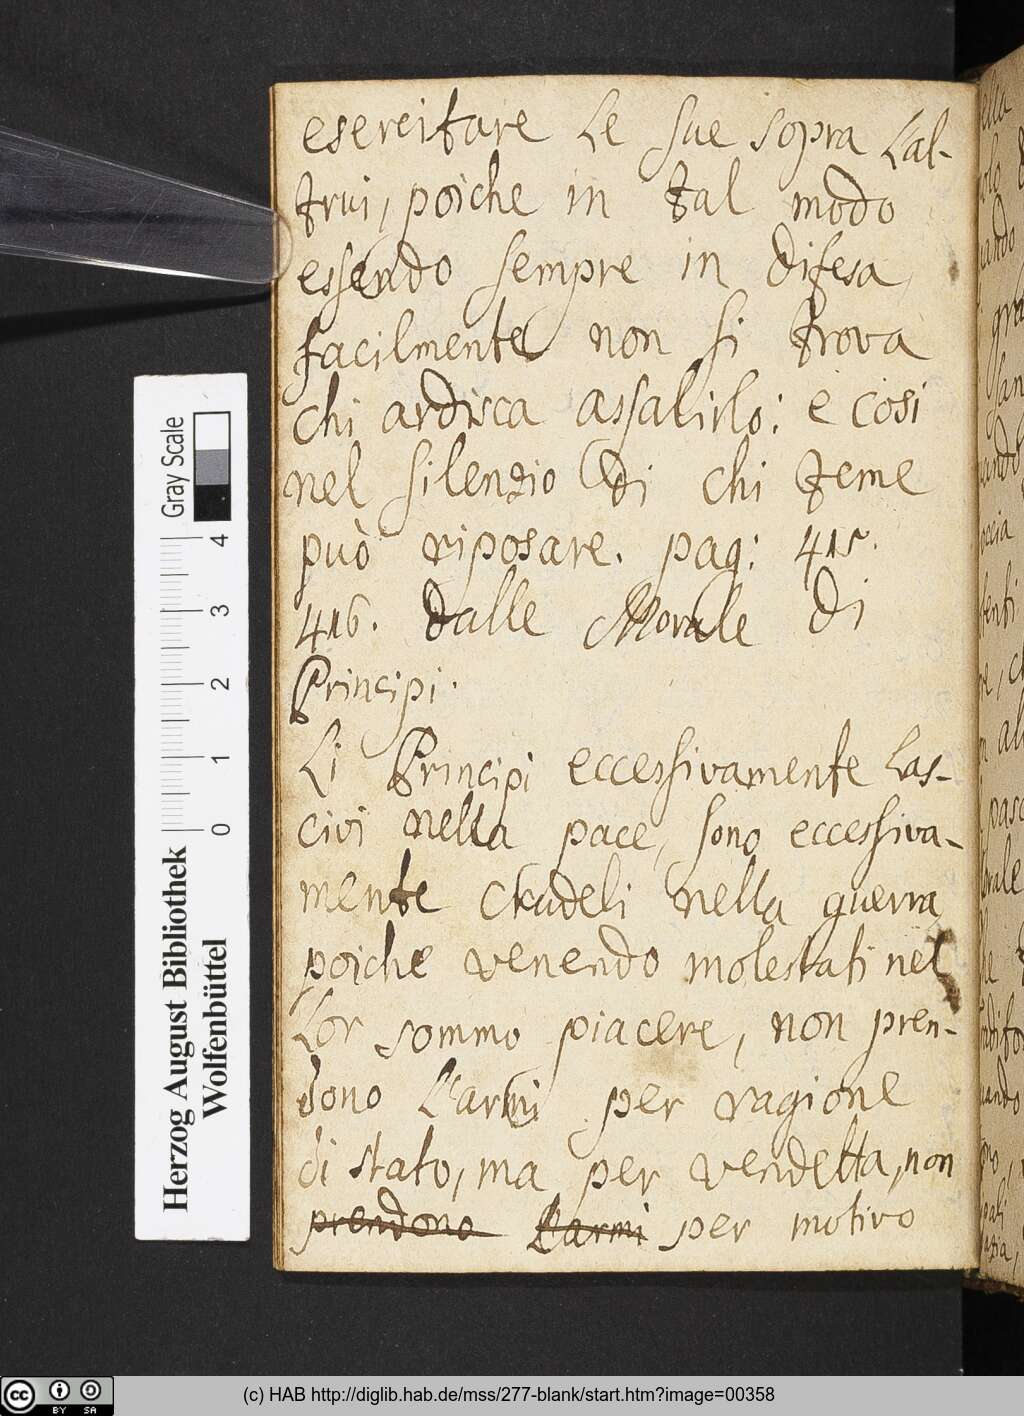 esercitare Le sue sopra Lal-
trui, poiche in tal modo
essendo sempre in difesa,
facilmente non si trova
chi ardisca assalirlo: è così
nel silenzio di chi teme
può riposare. pag: 415.
416. dalle Morale di
Principi.
Li Principi eccessivamente Las-
civi nella pace, sono eccessiva-
mente crudeli nella guerra,
poiche venendo molestati nel
Lor sommo piacere, non pren-
dono L'armi per ragione
di stato, ma per vendetta, non
prendono L'armi per motivo
Gray Scale
0 1 2 3 4
Herzog August Bibliothek
Wolfenbüttel
cc BY SA
(c) HAB http://diglib.hab.de/mss/277-blank/start.htm?image=00358